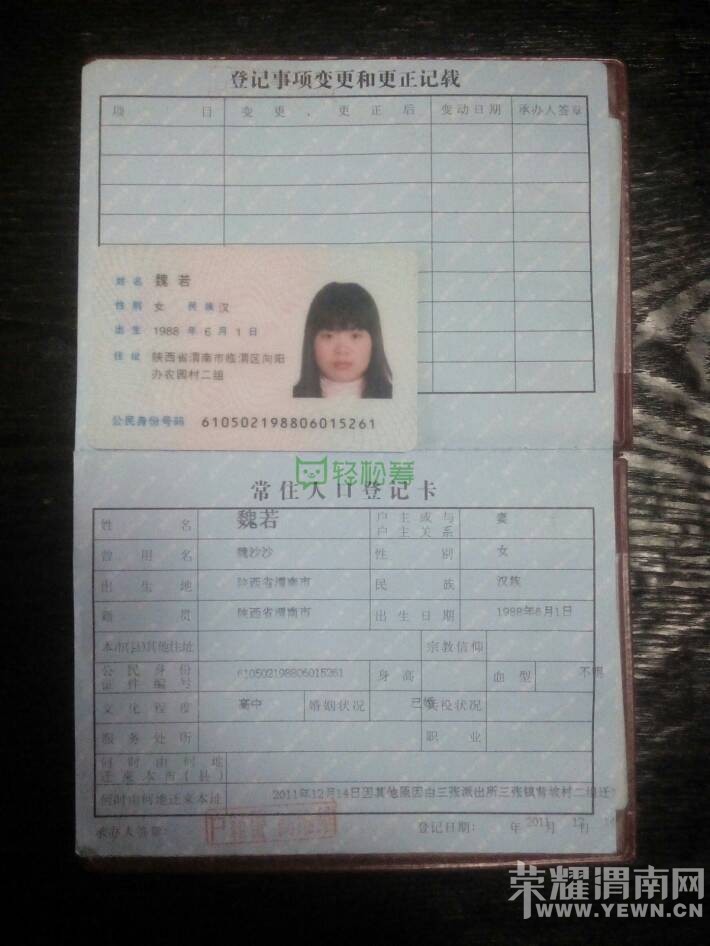 登记事项变更和更正记载
项 目 变 更 、 更 正 后 变动日期 承办人签章
姓 名 魏 若
性 别 女 民 族 汉
出 生 1988 年 6 月 1 日
住 址 陕西省渭南市临渭区向阳
办农园村二组
公民身份号码 610502198806015261
轻松筹
常住人口登记卡
姓 名 魏若 户主或与户主关系 妻
曾用名 魏沙沙 性 别 女
出生地 陕西省渭南市 民 族 汉族
籍 贯 陕西省渭南市 出生日期 1988年6月1日
本市(县)其他住址 宗教信仰
公民身份证件编号 610502198806015261 身高 血型 不明
文化程度 高中 婚姻状况 已婚 兵役状况
服务处所 职 业
何时由何地迁来本市(县)
何时由何地迁来本址 2011年12月14日因其他原因由三张派出所三张镇背坡村二组迁
承办人签章: 登记日期: 2011 年 12 月
荣耀渭南网
WWW.YEWN.CN